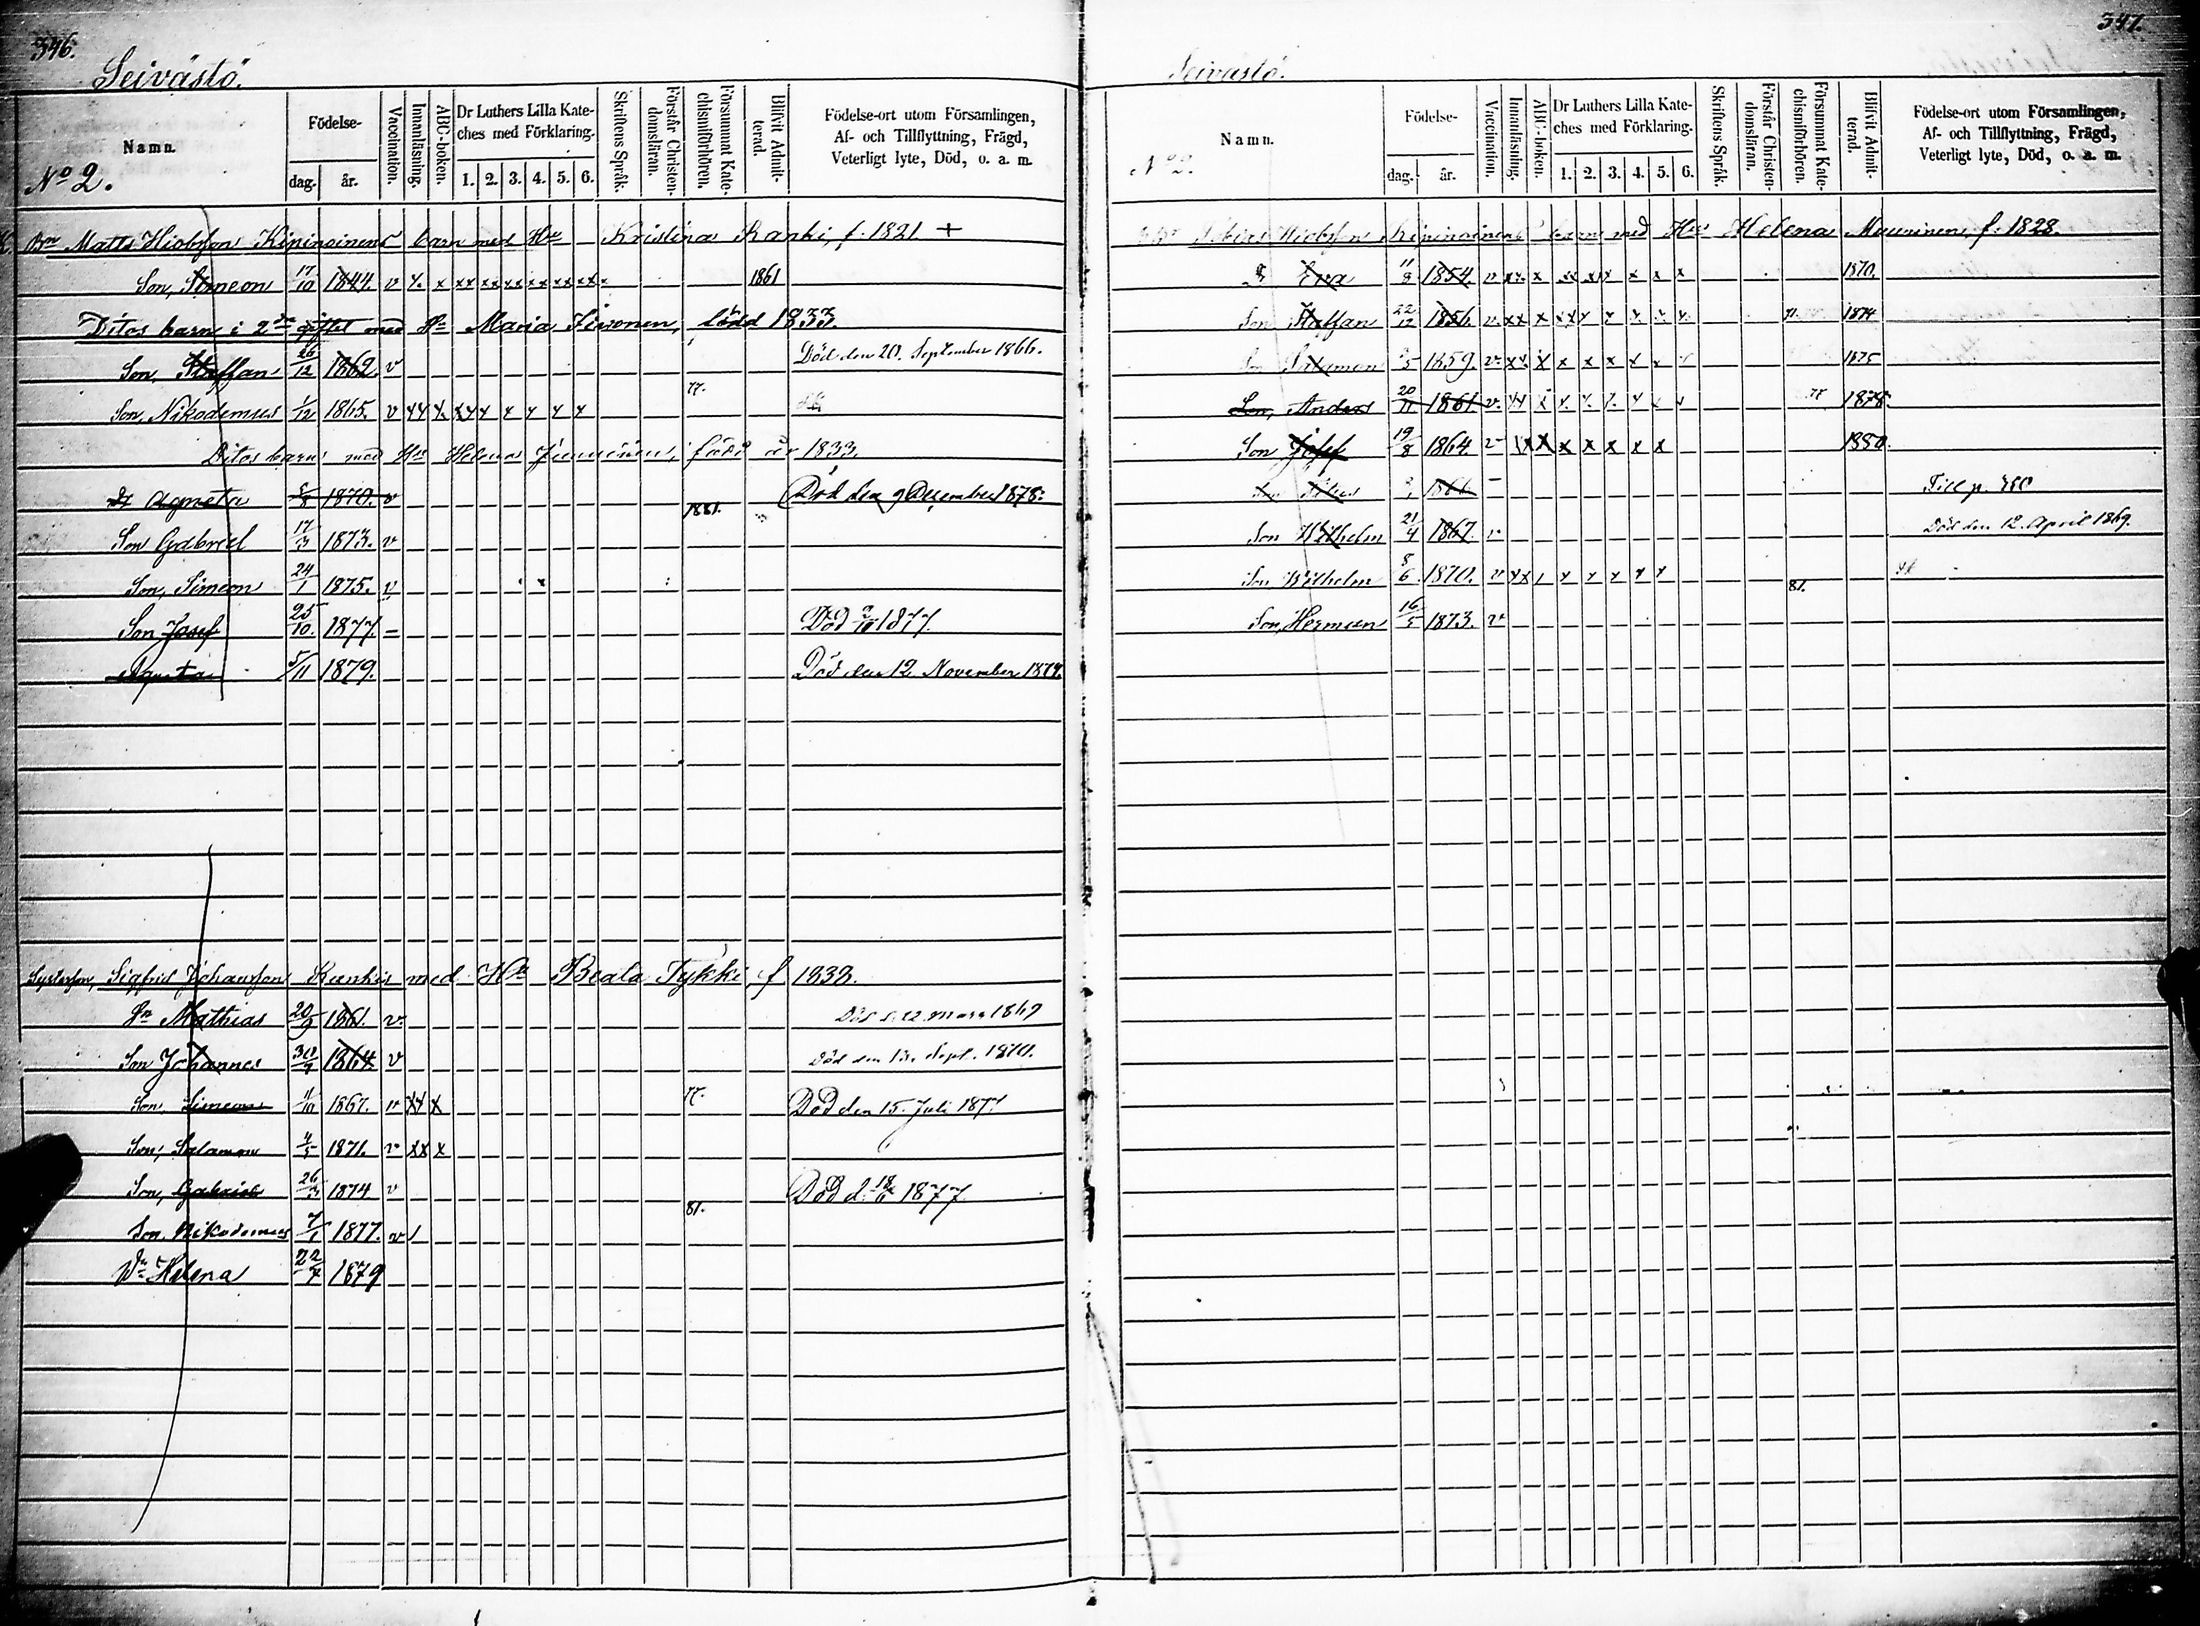 346.
Seivästö.
Namn.
No 2.
Födelse-
dag. år.
Vaccination.
Innanläsning.
ABC-boken.
Dr Luthers Lilla Kate-
ches med Förklaring.
1. 2. 3. 4. 5. 6.
Skriftens Språk.
Förstår Christen-
domsläran.
Försummat Kate-
chismiförhören.
Blifvit Admit-
terad.
Födelse-ort utom Församlingen,
Af- och Tillflyttning, Frägd,
Veterligt lyte, Död, o. a. m.
Bn Matts Hiobsson Kipinoinens barn med Hu Kristina Kanki, f. 1821 +
Son, Simeon 17/10 1844. v x. x xx xx xx xx xx xx 1861
Ditos barn i 2dra giftet med Hu Maria född 1833.
Son, Staffan 26/12 1862. v Död den 20. September 1866.
Son, Nikodemus 1/12 1865. v xx x. xxx x x x x 77.
Ditos barn med Hu Helena född år 1833.
Dr Agneta 5/8 1870. v Död den 9 December 1878.
1881.
Son Gabriel 17/3 1873. v
Son, Simeon 24/1 1875. v
Son Josef 25/10. 1877. – Död 1877.
Agneta 5/11 1879. Död den 12 November 1879.
Systerson, Sigfrid Johansson Kunkis med Hu Beata Tykki, f 1838.
Sn Mathias 20/9 1861. v. Död d. 22 Mars 1869
Son Johannes 30/9 1864 v Död den Sept. 1870.
Son Simeon 4/10 1867. v xx x 77. Död den 15. Juli 1877.
Son, Salomon 4/5 1871. v xx x
Son, Gabriel 26/3 1874 v Död d. 18/6 1877
81.
Son, Nikodemus 7/1 1877. v
Dr Helena 22/7 1879
347.
Seivästö.
Namn.
No 2.
Födelse-
dag. år.
Vaccination.
Innanläsning.
ABC-boken.
Dr Luthers Lilla Kate-
ches med Förklaring.
1. 2. 3. 4. 5. 6.
Skriftens Språk.
Förstår Christen-
domsläran.
Försummat Kate-
chismiförhören.
Blifvit Admit-
terad.
Födelse-ort utom Församlingen,
Af- och Tillflyttning, Frägd,
Veterligt lyte, Död, o. a. m.
Tobias Hiobsson Kipinoinens barn med Hu Helena Muurinen, f. 1828.
Eva 11/8 1854. v xx x xx xx x x x x 1870.
Son Staffan 22/12 1856. v. xx x xx x x x. x. x. 1874
Son Salomon 1859. v xx. x x x x x x 1875
Son, Anders 20/11 1861 v. xx x x. x. x. x x x 77 1878
Son Josef 19/8 1864 v x x x x x x x 1880.
Son Till p. 380
Son Wilhelm 21/4 1867. v Död den 12. April 1869.
Son Wilhelm 8/6 1870. v xx x x x x x 81.
Son, Herman 16/5 1873. v